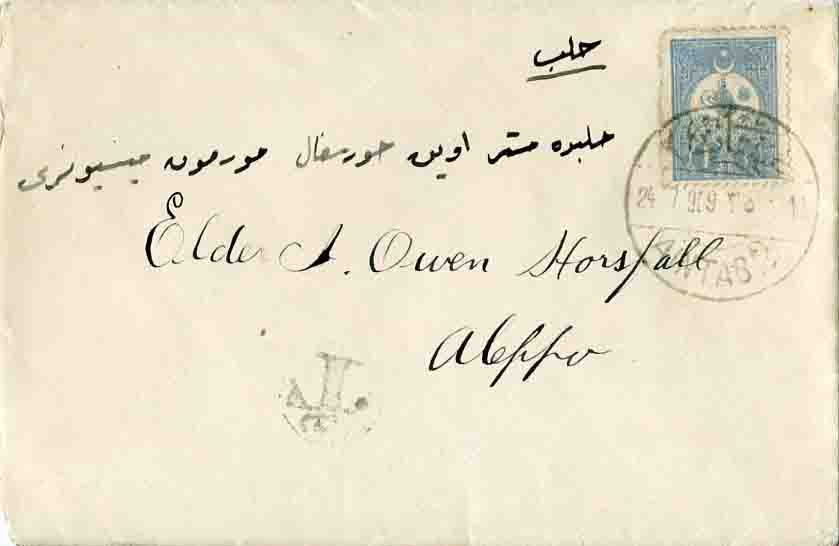 حلب
حلبده مستر اوين حورسفال مورمون ميسيونرى
Elder A. Owen Horsfall
Aleppo
24 7 909